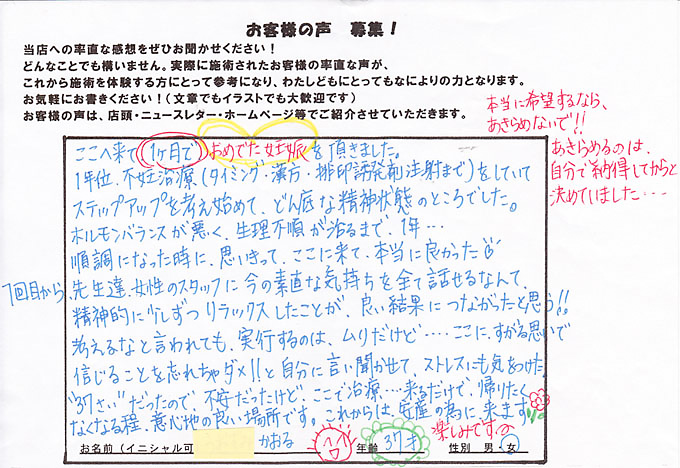 お客様の声 募集!
当店への率直な感想をぜひお聞かせください!
どんなことでも構いません。実際に施術されたお客様の率直な声が、
これから施術を体験する方にとって参考になり、わたしどもにとってもなによりの力となります。
お気軽にお書きください!(文章でもイラストでも大歓迎です)
お客様の声は、店頭・ニュースレター・ホームページ等でご紹介させていただきます。
本当に希望するなら、
あきらめないで!!
あきらめるのは、
自分で納得してからと
決めていました・・・
ここへ来て1ヶ月でおめでた妊娠を頂きました。
1年位、不妊治療(タイミング・漢方・排卵誘発剤注射まで)をしていて
ステップアップを考え始めて、どん底な精神状態のところでした。
ホルモンバランスが悪く、生理不順が治るまで、1年…
順調になった時に、思いきって、ここに来て、本当に良かった
1回目から、先生達、女性のスタッフに今の素直な気持ちを全て話せるなんて、
精神的に少しずつリラックスしたことが、良い結果につながったと思う!!
考えるなと言われても、実行するのは、ムリだけど・・・・ここに、すがる思いで
信じることを忘れちゃダメ!!と自分に言い聞かせて、ストレスにも気をつけた
"37さい"だったので、不安だったけど、ここで治療・・・来るだけで、帰りたく
なくなる程、居心地の良い場所です。これからは、安産の為に来ます
楽しみです
お名前(イニシャル可 かおる 年齢 37才 性別 男・女)